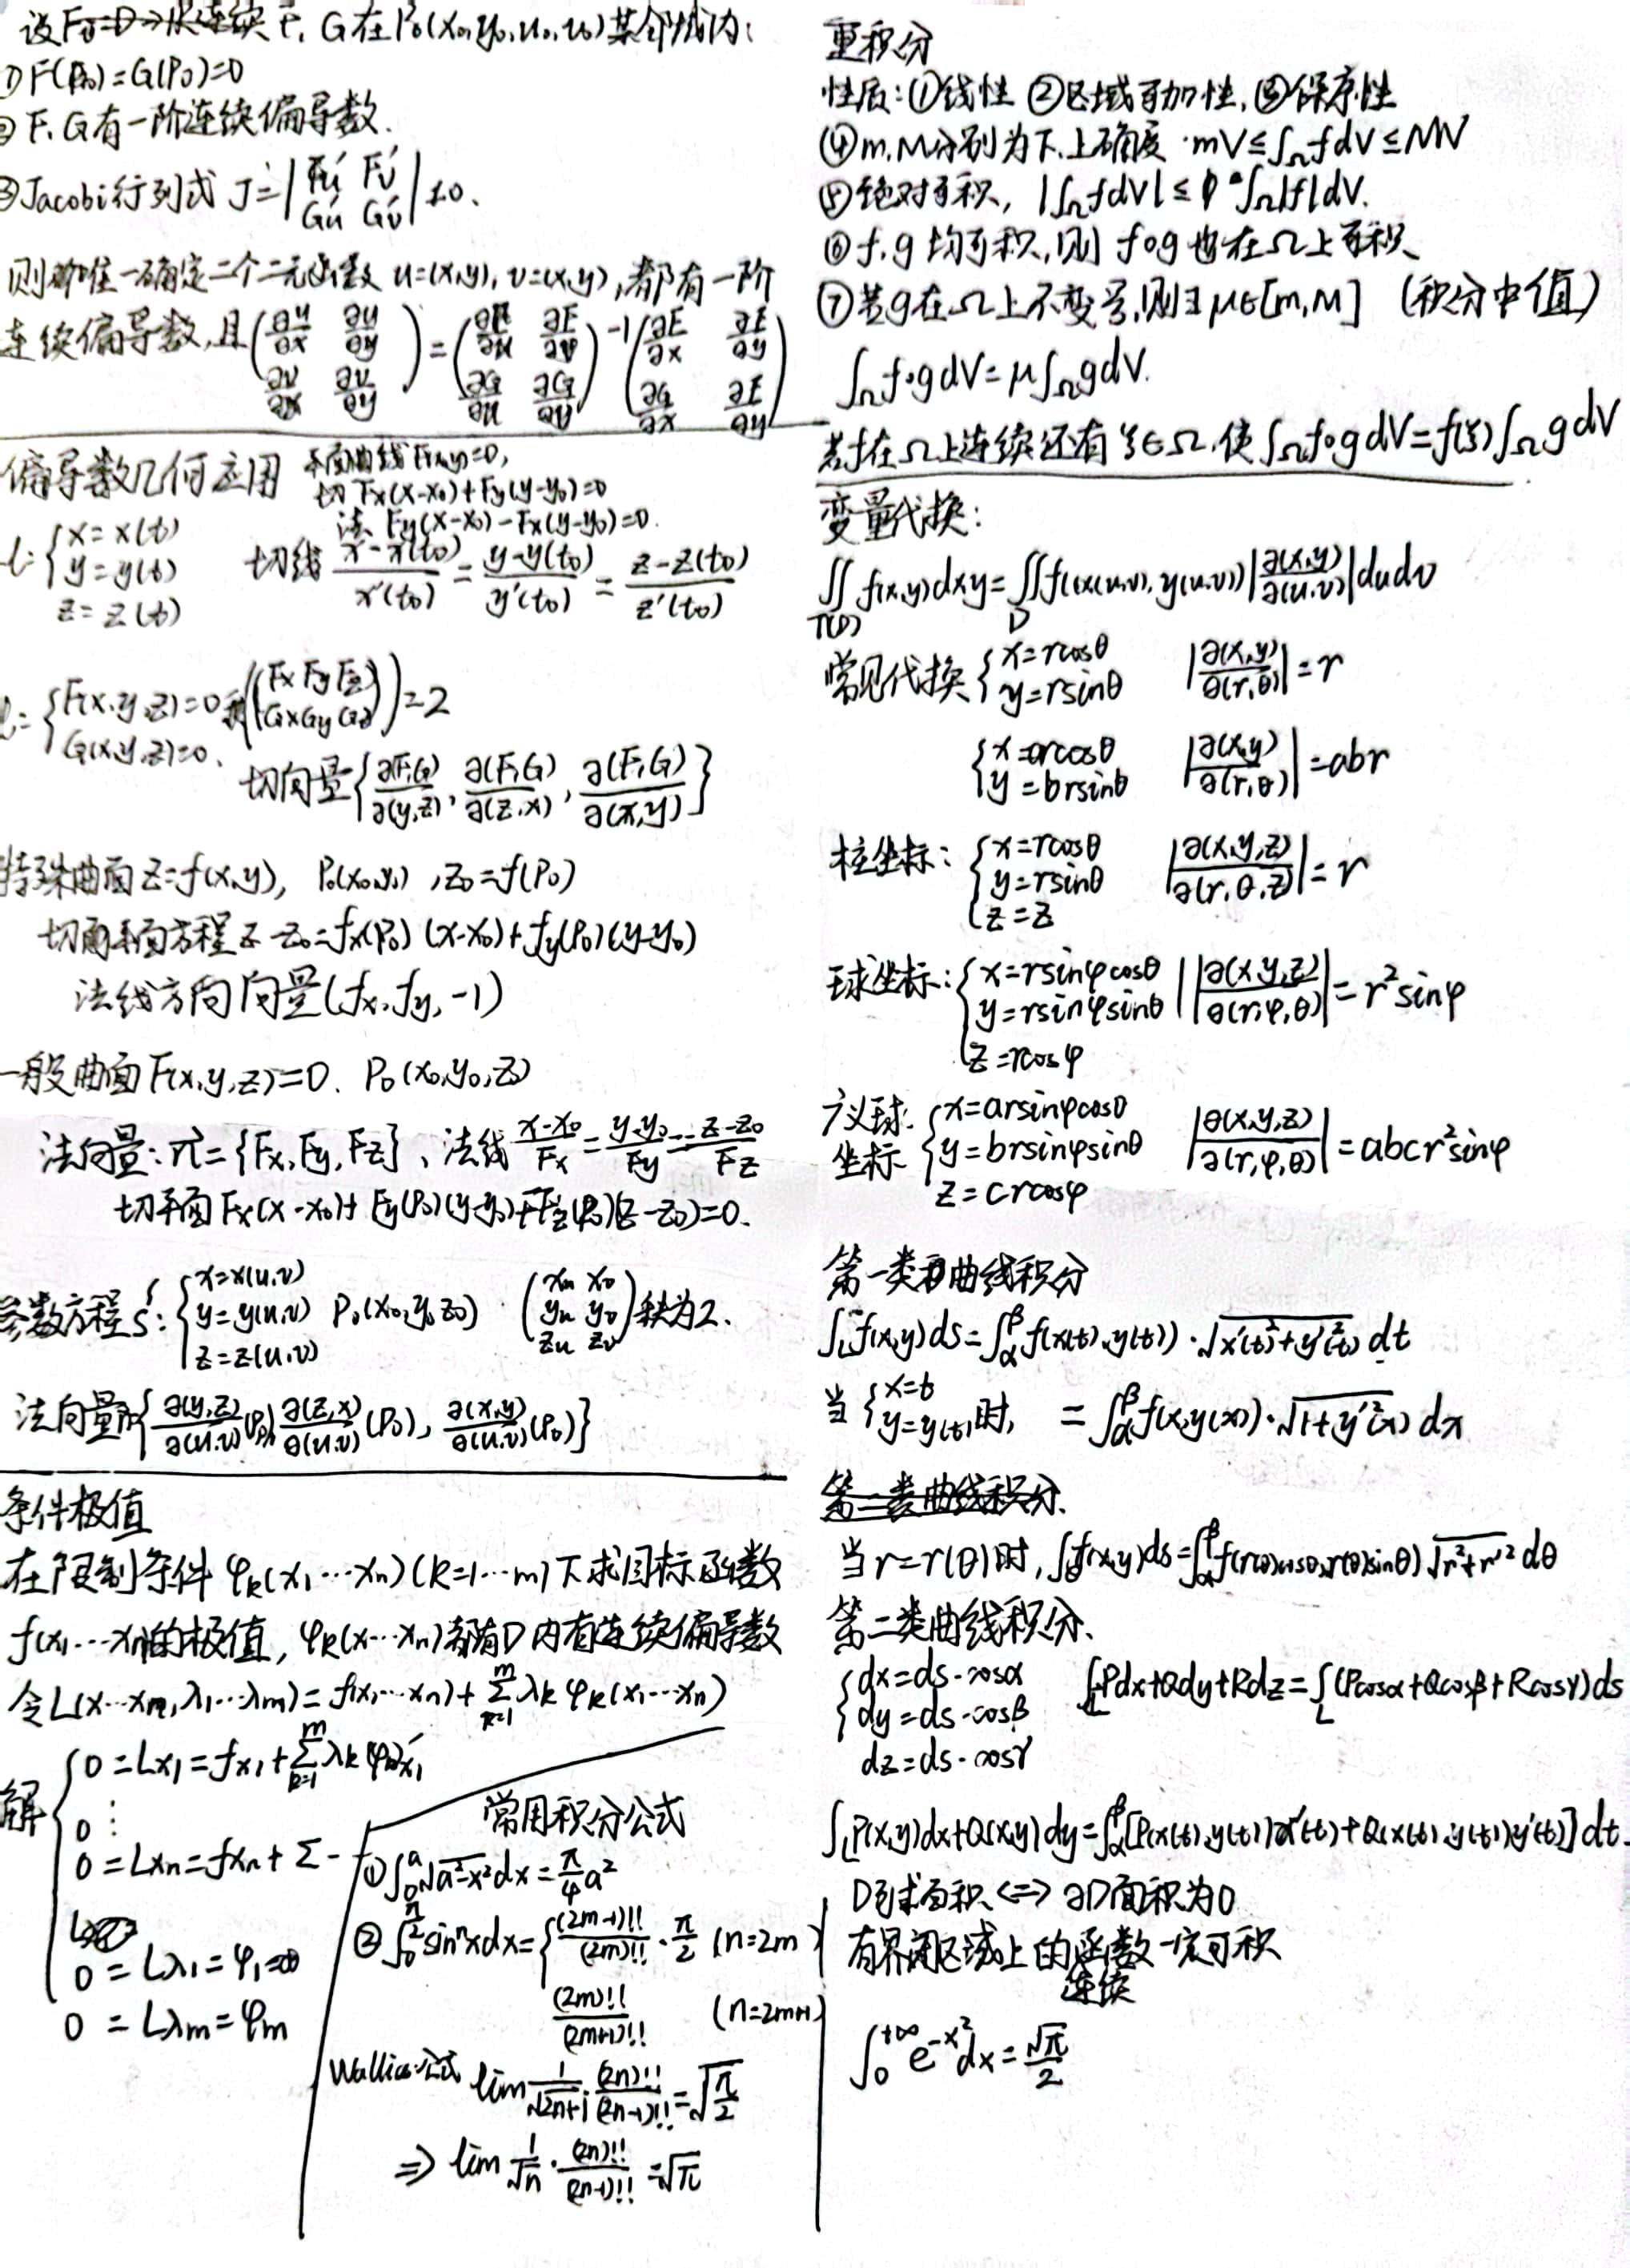 F, G在P₀(x₀,y₀,u₀,v₀)某邻域内:
①F(P₀)=G(P₀)=0
②F,G有一阶连续偏导数.
③Jacobi行列式 J=|Fu′ Fv′; Gu′ Gv′|≠0.
则唯一确定二个二元函数 u=(x,y), v=(x,y),都有一阶
连续偏导数,且(∂u/∂x ∂u/∂y; ∂v/∂x ∂v/∂y)=(∂F/∂u ∂F/∂v; ∂G/∂u ∂G/∂v)⁻¹(∂F/∂x ∂F/∂y; ∂G/∂x ∂F/∂y)
偏导数几何应用
平面曲线F(x,y)=0,
切 Fx(x-x₀)+Fy(y-y₀)=0
法 Fy(x-x₀)-Fx(y-y₀)=0.
l: {x=x(t)
y=y(t)
z=z(t)
切线 (x-x(t₀))/x′(t₀) = (y-y(t₀))/y′(t₀) = (z-z(t₀))/z′(t₀)
l: {F(x,y,z)=0
G(x,y,z)=0.
(Fx Fy Fz; Gx Gy Gz)=2
切向量{∂(F,G)/∂(y,z), ∂(F,G)/∂(z,x), ∂(F,G)/∂(x,y)}
特殊曲面 z=f(x,y), P₀(x₀,y₀), z₀=f(P₀)
切平面方程 z-z₀=fx(P₀)(x-x₀)+fy(P₀)(y-y₀)
法线方向向量(fx,fy,-1)
一般曲面F(x,y,z)=0. P₀(x₀,y₀,z₀)
法向量:n={Fx,Fy,Fz}、法线 (x-x₀)/Fx=(y-y₀)/Fy=(z-z₀)/Fz
切平面Fx(x-x₀)+Fy(P₀)(y-y₀)+Fz(P₀)(z-z₀)=0.
参数方程S: {x=x(u,v)
y=y(u,v)
z=z(u,v)
P₀(x₀,y₀,z₀) (xu xv; yu yv; zu zv)秩为2.
法向量{∂(y,z)/∂(u,v)(P₀), ∂(z,x)/∂(u,v)(P₀), ∂(x,y)/∂(u,v)(P₀)}
条件极值
在限制条件 φk(x₁⋯xn)(k=1⋯m)下求目标函数
f(x₁⋯xn)的极值, φk(x⋯xn)都在D内有连续偏导数
令L(x⋯xn,λ₁⋯λm)=f(x₁⋯xn)+∑(k=1→m)λkφk(x₁⋯xn)
解 {0=Lx₁=fx₁+∑(k=1→m)λk(φk)′x₁
0 ⋮
0=Lxn=fxn+∑-
0=Lλ₁=φ₁
0=Lλm=φm
常用积分公式
①∫₀ᵃ√(a²-x²)dx=π/4 a²
②∫₀^(π/2) sinⁿxdx={(2m-1)!!/(2m)!!·π/2 (n=2m)
(2m)!!/(2m+1)!! (n=2m+1)
Wallis公式 lim 1/√(2n+1)·(2n)!!/(2n-1)!!=√(π/2)
⇒ lim 1/√n·(2n)!!/(2n-1)!!=√π
重积分
性质:①线性 ②区域可加性,③保序性
④m,M分别为下,上确度 mV≤∫ΩfdV≤MV
⑤绝对可积, |∫ΩfdV|≤∫Ω|f|dV.
⑥f,g均可积,则 f∘g也在Ω上可积
⑦若g在Ω上不变号,则∃μ∈[m,M] (积分中值)
∫Ωf·gdV=μ∫ΩgdV.
若f在Ω上连续还有ξ∈Ω,使∫Ωf·gdV=f(ξ)∫ΩgdV
变量代换:
∬T(D) f(x,y)dxy=∬D f(x(u,v),y(u,v))|∂(x,y)/∂(u,v)|dudv
常见代换 {x=rcosθ
y=rsinθ
|∂(x,y)/∂(r,θ)|=r
{x=arcosθ
y=brsinθ
|∂(x,y)/∂(r,θ)|=abr
柱坐标: {x=rcosθ
y=rsinθ
z=z
|∂(x,y,z)/∂(r,θ,z)|=r
球坐标: {x=rsinφcosθ
y=rsinφsinθ
z=rcosφ
|∂(x,y,z)/∂(r,φ,θ)|=r²sinφ
广义球坐标 {x=arsinφcosθ
y=brsinφsinθ
z=crcosφ
|∂(x,y,z)/∂(r,φ,θ)|=abcr²sinφ
第一类曲线积分
∫L f(x,y)ds=∫αᵝ f(x(t),y(t))·√(x′(t)²+y′(t)²) dt
当{x=t
y=y(t)时, =∫αᵝ f(x,y(x))·√(1+y′²(x)) dx
第二类曲线积分.
当r=r(θ)时,∫f(x,y)ds=∫αᵝ f(r(θ)cosθ,r(θ)sinθ)√(r²+r′²) dθ
第二类曲线积分、
{dx=ds·cosα
dy=ds·cosβ
dz=ds·cosγ
∫L Pdx+Qdy+Rdz=∫L (Pcosα+Qcosβ+Rcosγ)ds
∫L P(x,y)dx+Q(x,y)dy=∫αᵝ[P(x(t),y(t))x′(t)+Q(x(t),y(t))y′(t)]dt.
D可求面积⟺∂D面积为0
有界闭区域上的连续函数一定可积
∫₀^(+∞) e^(-x²)dx=√π/2